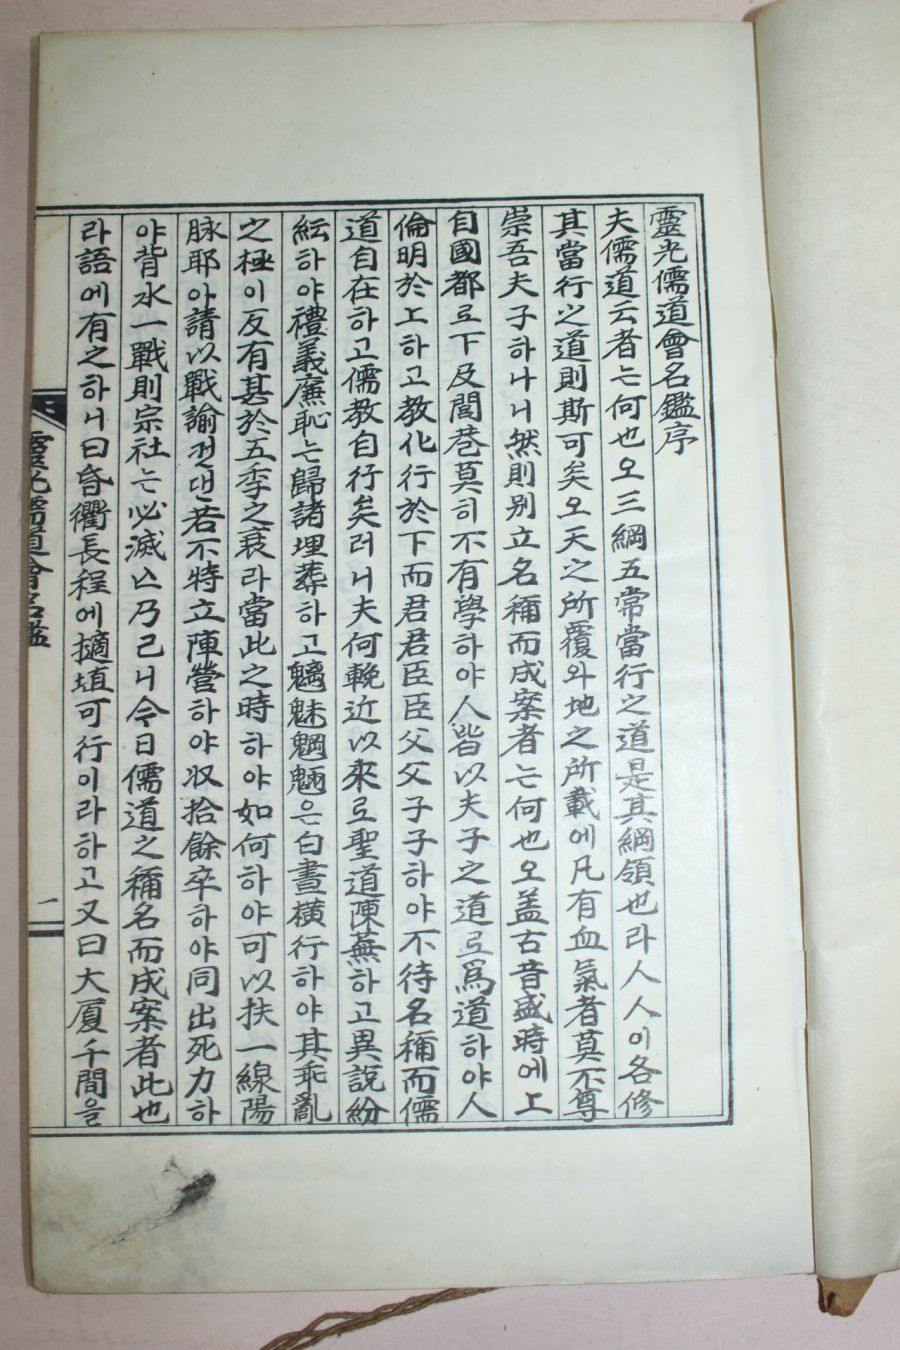 靈光儒道會名鑑序
夫儒道云者는何也오三綱五常當行之道是其綱領也라人人이各修
其當行之道則斯可矣오天之所覆와地之所載에凡有血氣者莫不尊
崇吾夫子하나니然則別立名稱而成案者는何也오盖古昔盛時에上
自國都로下及閭巷莫不有學하야人皆以夫子之道로爲道하야人
倫明於上하고教化行於下而君君臣臣父父子子하야不待名稱而儒
道自在하고儒教自行矣러니夫何輓近以來로聖道陳蕪하고異說紛
紜하야禮義廉恥는歸諸埋葬하고魑魅魍魎은白晝橫行하야其乖亂
之極이反有甚於五季之衰라當此之時하야如何하야可以扶一線陽
脉耶아請以戰諭컨댄若不特立陣營하야収拾餘卒하야同出死力하
야背水一戰則宗社는必滅亡乃已니今日儒道之稱名而成案者此也
라語에有之하니曰昏衢長程에擿埴可行이라하고又曰大厦千間을
靈光儒道會名鑑
一